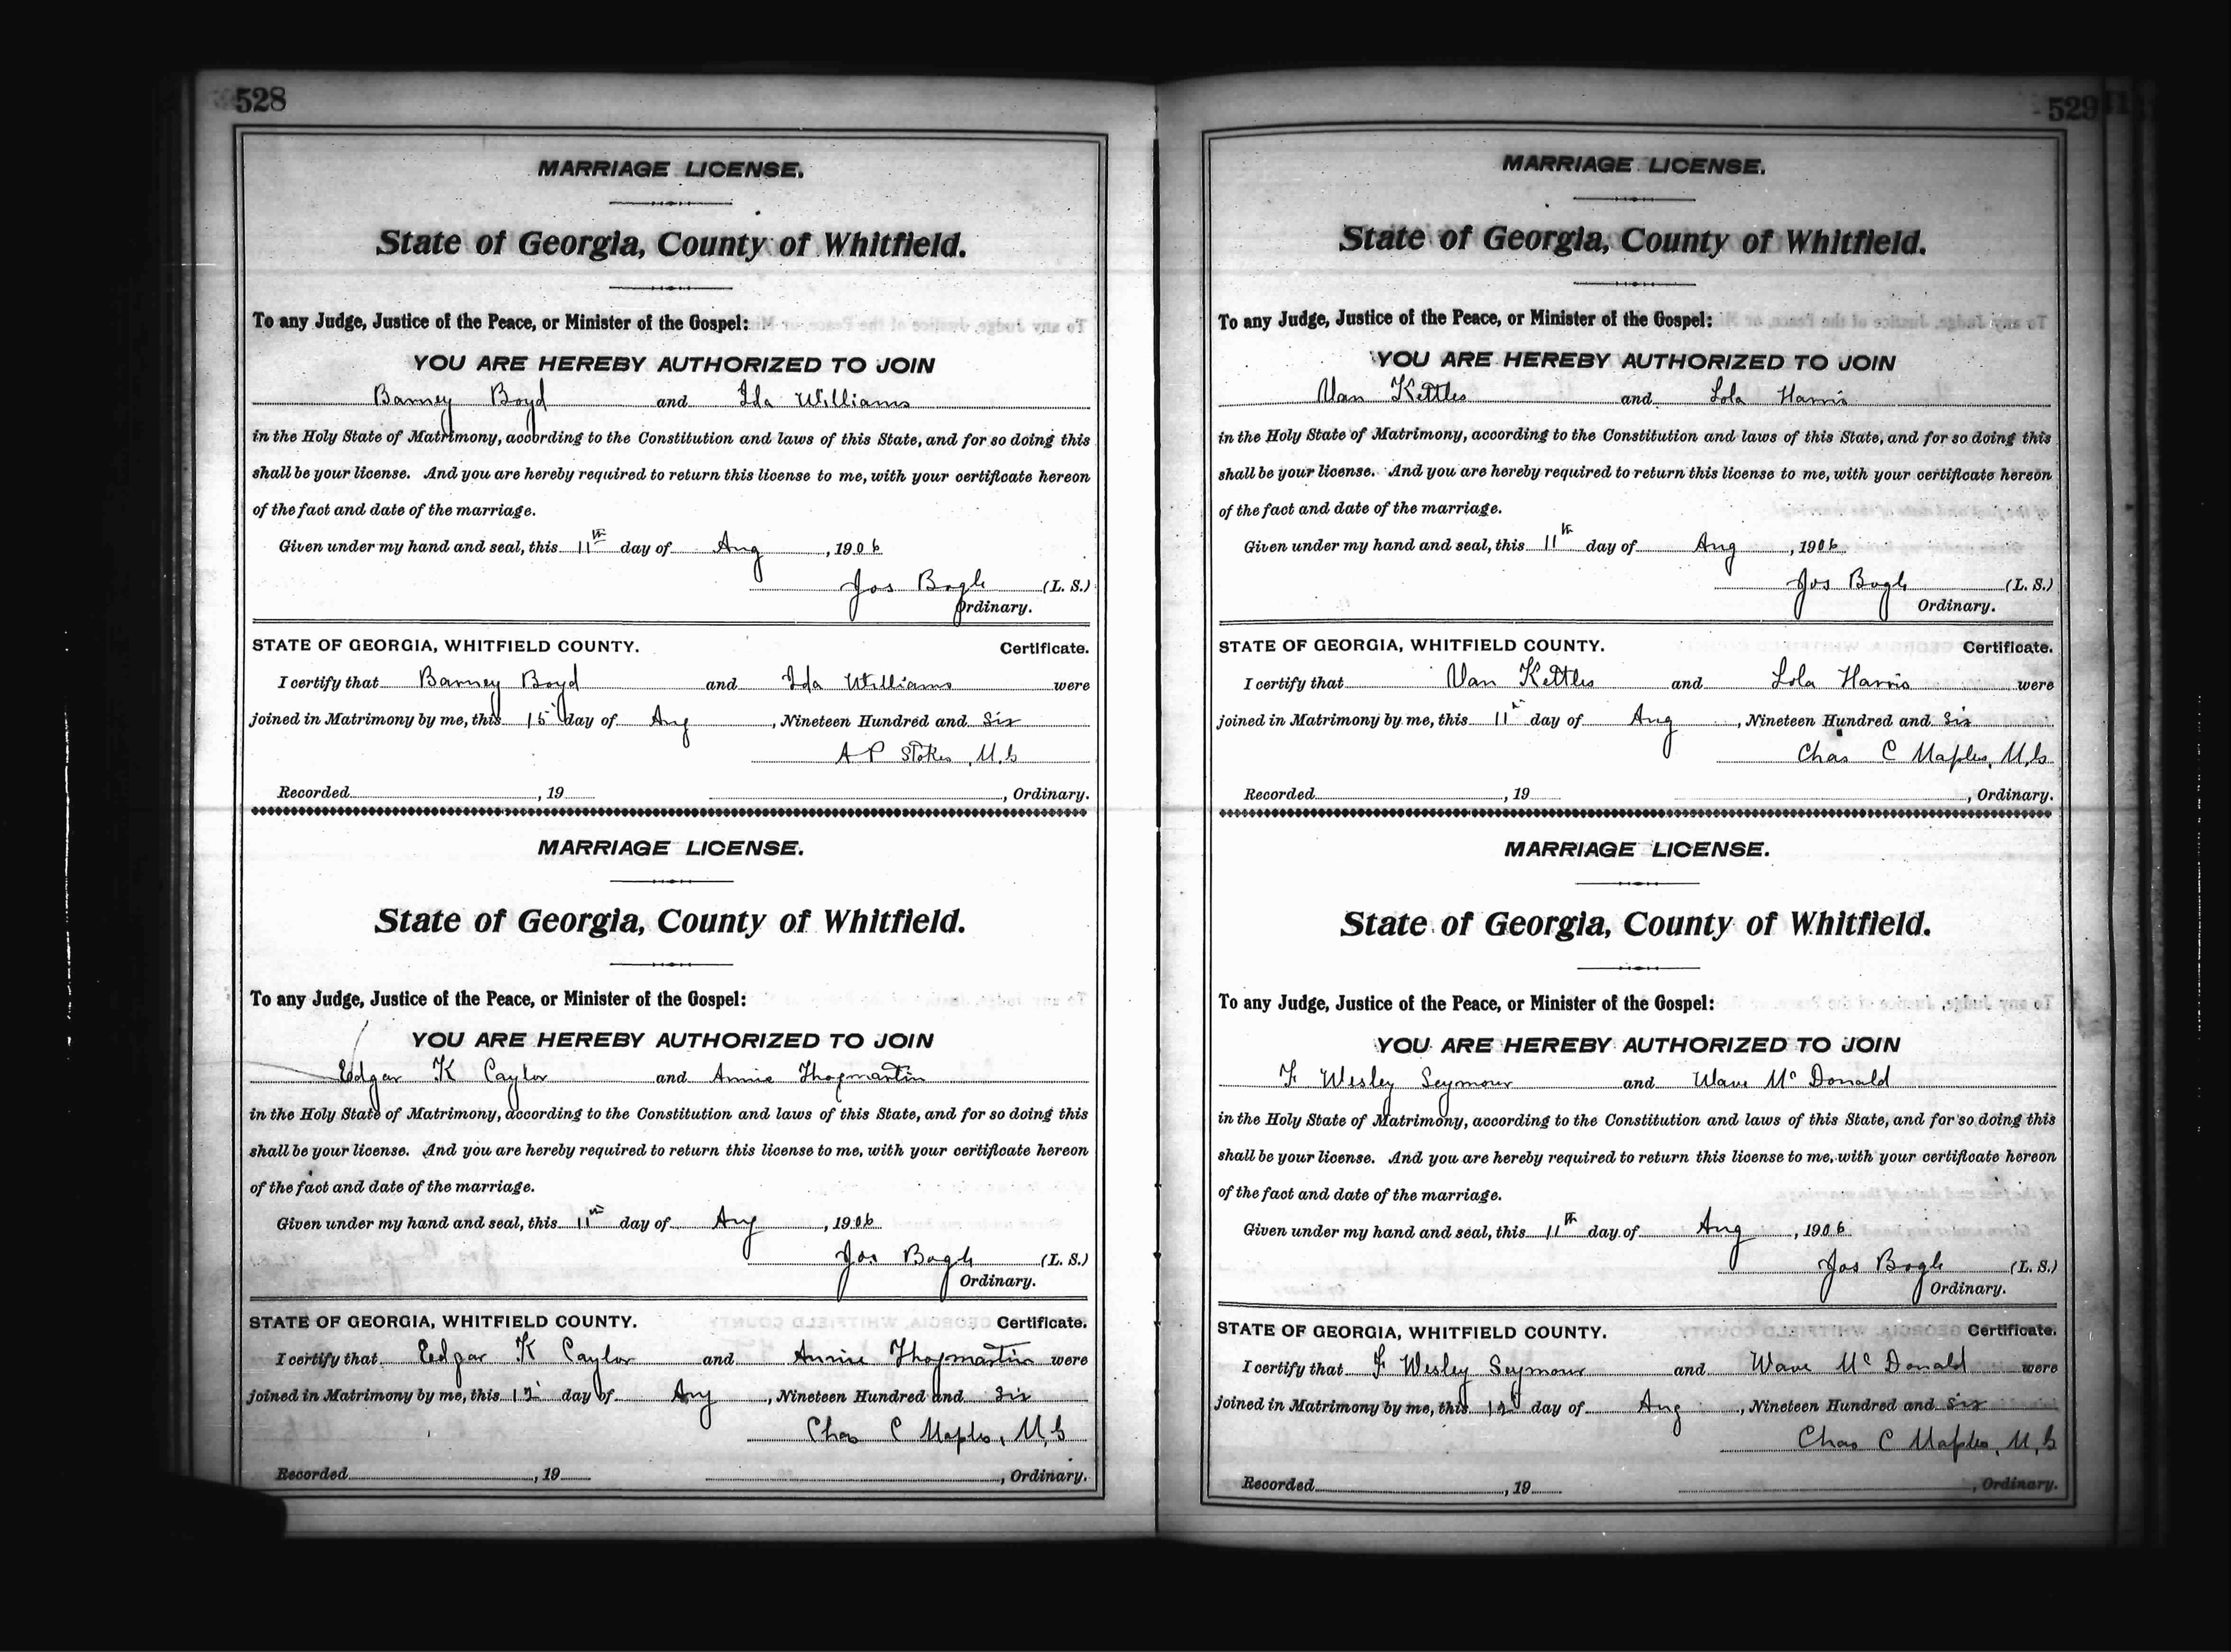 528
MARRIAGE LICENSE.
State of Georgia, County of Whitfield.
To any Judge, Justice of the Peace, or Minister of the Gospel:
YOU ARE HEREBY AUTHORIZED TO JOIN
Barney Boyd and Ida Williams
in the Holy State of Matrimony, according to the Constitution and laws of this State, and for so doing this
shall be your license. And you are hereby required to return this license to me, with your certificate hereon
of the fact and date of the marriage.
Given under my hand and seal, this 11th day of Aug, 1906
Jos Bogle (L. S.)
Ordinary.
STATE OF GEORGIA, WHITFIELD COUNTY. Certificate.
I certify that Barney Boyd and Ida Williams were
joined in Matrimony by me, this 15 day of Aug, Nineteen Hundred and Six
A P Stokes, M.G
Recorded, 19 , Ordinary.
MARRIAGE LICENSE.
State of Georgia, County of Whitfield.
To any Judge, Justice of the Peace, or Minister of the Gospel:
YOU ARE HEREBY AUTHORIZED TO JOIN
Edgar K Caylor and Annie Thogmartin
in the Holy State of Matrimony, according to the Constitution and laws of this State, and for so doing this
shall be your license. And you are hereby required to return this license to me, with your certificate hereon
of the fact and date of the marriage.
Given under my hand and seal, this 11th day of Aug, 1906
Jos Bogle (L. S.)
Ordinary.
STATE OF GEORGIA, WHITFIELD COUNTY. Certificate.
I certify that Edgar K Caylor and Annie Thogmartin were
joined in Matrimony by me, this 12 day of Aug, Nineteen Hundred and Six
Chas C Maples, M,G
Recorded, 19 , Ordinary.
529
MARRIAGE LICENSE.
State of Georgia, County of Whitfield.
To any Judge, Justice of the Peace, or Minister of the Gospel:
YOU ARE HEREBY AUTHORIZED TO JOIN
Van Kettles and Lola Harris
in the Holy State of Matrimony, according to the Constitution and laws of this State, and for so doing this
shall be your license. And you are hereby required to return this license to me, with your certificate hereon
of the fact and date of the marriage.
Given under my hand and seal, this 11th day of Aug, 1906
Jos Bogle (L. S.)
Ordinary.
STATE OF GEORGIA, WHITFIELD COUNTY. Certificate.
I certify that Van Kettles and Lola Harris were
joined in Matrimony by me, this 11th day of Aug, Nineteen Hundred and Six
Chas C Maples, M,G
Recorded, 19 , Ordinary.
MARRIAGE LICENSE.
State of Georgia, County of Whitfield.
To any Judge, Justice of the Peace, or Minister of the Gospel:
YOU ARE HEREBY AUTHORIZED TO JOIN
F. Wesley Seymour and Wave McDonald
in the Holy State of Matrimony, according to the Constitution and laws of this State, and for so doing this
shall be your license. And you are hereby required to return this license to me, with your certificate hereon
of the fact and date of the marriage.
Given under my hand and seal, this 11th day of Aug, 1906
Jos Bogle (L. S.)
Ordinary.
STATE OF GEORGIA, WHITFIELD COUNTY. Certificate.
I certify that F Wesley Seymour and Wave McDonald were
joined in Matrimony by me, this 12 day of Aug, Nineteen Hundred and Six
Chas C Maples, M,G
Recorded, 19 , Ordinary.